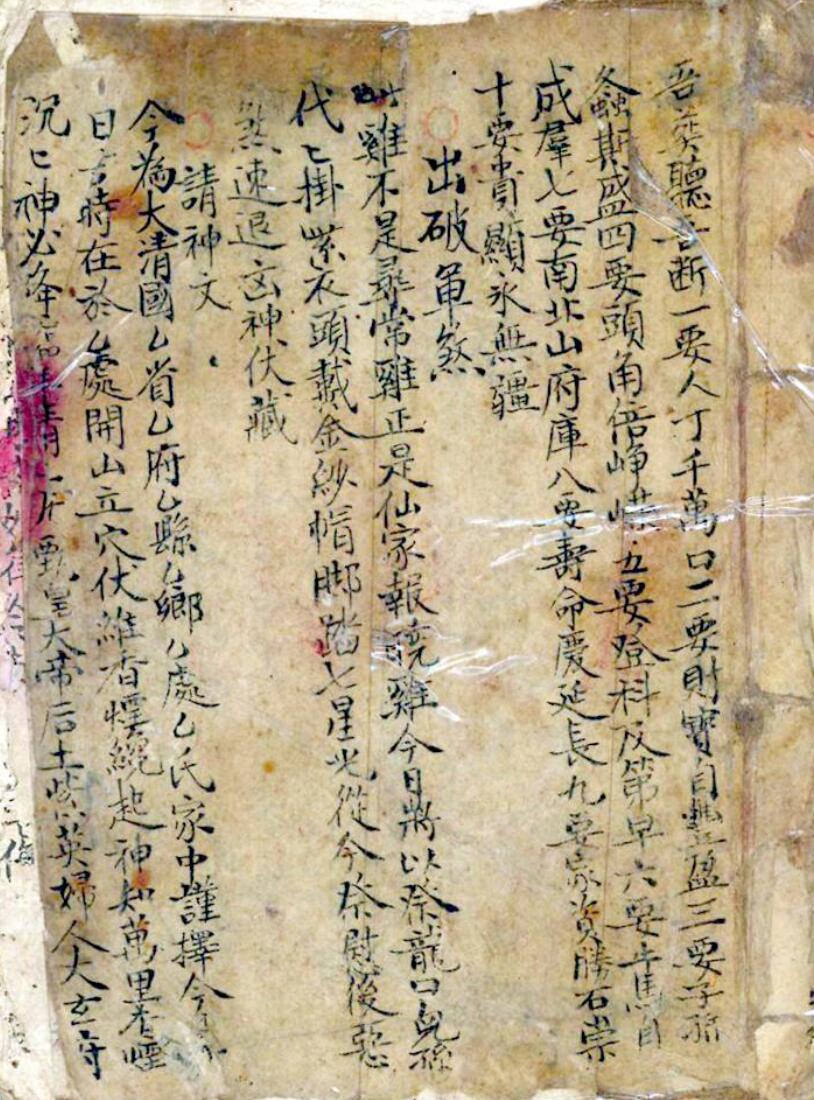 吾葬聽吾断一要人丁千萬口二要財寶自豐盈三要子孫
螽斯盛四要頭角倍崢嶸五要登科及第早六要牛馬自
成羣七要南北山府庫八要壽命慶延長九要家資勝石崇
十要貴顯永無疆
出破軍煞
雞不是尋常雞正是仙家報曉雞今日將以祭龍口兒孫
代〻掛紫衣頭戴金紗帽脚踏七星光從今祭慰後惡
煞速退凶神伏藏
請神文
今為大清國厶省厶府厶縣厶鄉厶處厶氏家中謹擇今
日吉時在於厶處開山立穴伏維香烟繞起神知萬里香烟
沉〻神必降 皇大帝后土紫英婦人大玄